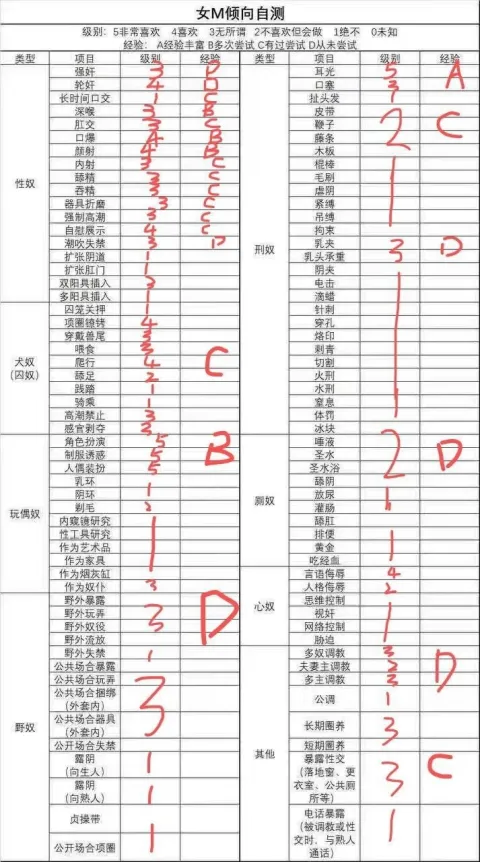 女M倾向自测
级别：5非常喜欢 4喜欢 3无所谓 2不喜欢但会做 1绝不 0未知
经验： A经验丰富 B多次尝试 C有过尝试 D从未尝试
类型 项目 级别 经验
性奴
强奸 3
轮奸 4 D
长时间口交 1 C
深喉 3 B
肛交 3 C
口爆 4 B
颜射 4 B
内射 3 C
舔精 3 C
吞精 3 C
器具折磨 3 C
强制高潮 3 C
自慰展示 4 C
潮吹失禁 3 D
扩张阴道 1
扩张肛门 1
双阳具插入 3
多阳具插入 1
犬奴
（囚奴）
囚笼关押 1
项圈镣铐 4
穿戴兽尾 3
喂食 3
爬行 4 C
舔足 2
践踏 1
骑乘 1
高潮禁止 3
感官剥夺 3
玩偶奴
角色扮演 5
制服诱惑 5 B
人偶装扮 5
乳环
阴环 1
剃毛 2
内窥镜研究
性工具研究
作为艺术品 1
作为家具
作为烟灰缸
作为奴仆 3
野奴
野外暴露
野外玩弄 3 D
野外奴役
野外流放
野外失禁 1
公共场合暴露
公共场合玩弄
公共场合捆绑
（外套内） 3
公共场合器具
（外套内）
公开场合失禁
露阴
（向生人） 1
露阴
（向熟人） 1
贞操带
公开场合项圈 1
类型 项目 级别 经验
刑奴
耳光 5 A
口塞 3
扯头发 1
皮带
鞭子 2 C
藤条
木板
棍棒
毛刷
虐阴 1
紧缚
吊缚
拘束
乳夹 3 D
乳头承重
阴夹
电击
滴蜡
针刺
穿孔
烙印 1
刺青
切割
火刑
水刑
窒息
体罚
冰块
厕奴
唾液
圣水 2 D
圣水浴
舔阴
放尿
灌肠
舔肛
排便
黄金 1
吃经血
心奴
言语侮辱 4
人格侮辱 2
思维控制
视奸 1
网络控制
胁迫
其他
多奴调教 3
夫妻主调教 2 D
多主调教 3
公调 1
长期圈养 3
短期圈养
暴露性交
（落地窗、更
衣室、公共厕
所等） 3 C
电话暴露
（被调教或性
交时，与熟人
通话） 1